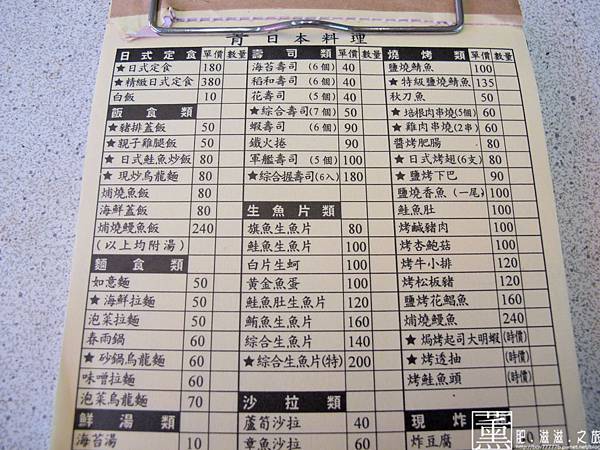 青日本料理
日式定食 單價 數量
★日式定食 180
★精緻日式定食 380
白飯 10
飯食類
★豬排蓋飯 50
★親子雞腿飯 50
★日式鮭魚炒飯 80
★現炒烏龍麵 80
焗燒魚飯 80
海鮮蓋飯 80
焗燒鰻魚飯 240
(以上均附湯)
麵食類
如意麵 50
★海鮮拉麵 50
泡菜拉麵 50
春雨鍋 60
★砂鍋烏龍麵 60
味噌拉麵 60
泡菜烏龍麵 70
鮮湯類
海苔湯 10
壽司類 單價 數量
海苔壽司 (6個) 40
稻和壽司 (6個) 40
花壽司 (5個) 40
★綜合壽司(7個) 50
蝦壽司 (6個) 90
鐵火捲 90
軍艦壽司 (5個) 100
★綜合握壽司(6入) 180
生魚片類
旗魚生魚片 80
鮭魚生魚片 100
白片生蚵 100
黃金魚蛋 100
鮭魚肚生魚片 120
鮪魚生魚片 160
綜合生魚片 140
★綜合生魚片(特) 200
沙拉類
蘆筍沙拉 40
章魚沙拉 60
燒烤類 單價 數量
鹽燒鯖魚 100
★特級鹽燒鯖魚 135
秋刀魚 50
★培根肉串燒(5個) 60
★雞肉串燒(2串) 60
醬烤肥腸 80
★日式烤翅(6支) 80
★鹽烤下巴 90
鹽燒香魚(一尾) 100
鮭魚肚 100
烤鹹豬肉 100
烤杏鮑菇 100
烤牛小排 120
烤松板豬 120
鹽烤花鯧魚 160
焗燒鰻魚 240
★焗烤起司大明蝦 (時價)
★烤透抽 (時價)
烤鮭魚頭 (時價)
現炸
炸豆腐
薰 肥。滋滋.之旅